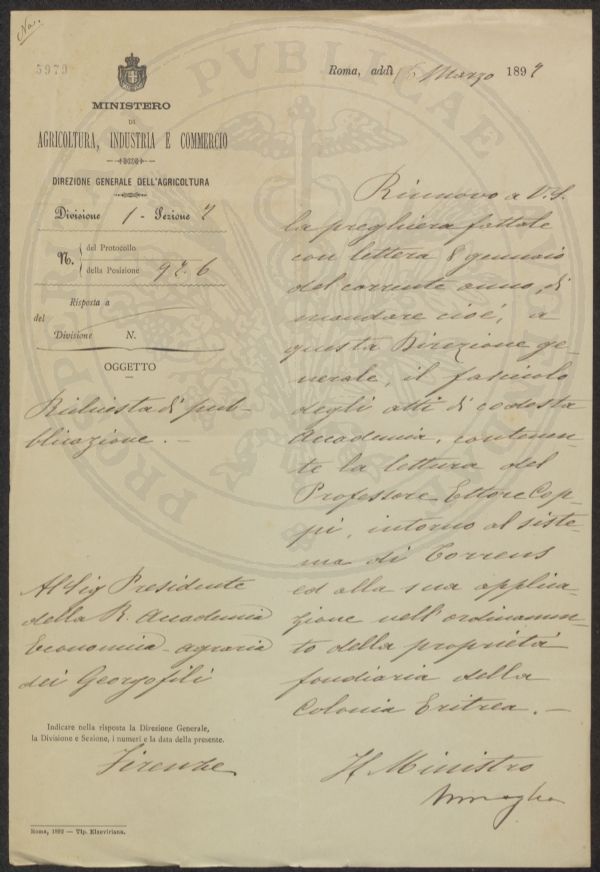 Nos.
5979
MINISTERO
DI
AGRICOLTURA, INDUSTRIA E COMMERCIO
DIREZIONE GENERALE DELL'AGRICOLTURA
Divisione 1 - Sezione 2
N. del Protocollo
della Posizione 92.6
Risposta a
del
Divisione N.
OGGETTO
Richiesta di pub-
blicazione. -
Al Sig Presidente
della R. Accademia
Economica-agraria
dei Georgofili
Indicare nella risposta la Direzione Generale,
la Divisione e Sezione, i numeri e la data della presente.
Firenze
Roma, 1892 — Tip. Elzeviriana.
Roma, addì Marzo 189
Rinnovo a V. S.
la preghiera fattale
con lettera 8 gennaio
del corrente anno, di
mandare cioé, a
questa Direzione ge-
nerale, il fascicolo
degli atti di codesta
Accademia, contenen-
te la lettura del
Professore Ettore Cop-
pi, intorno al siste-
ma di Torrens
ed alla sua applica-
zione nell'ordinamen-
to della proprietá
fondiaria della
Colonia Eritrea. -
Il Ministro